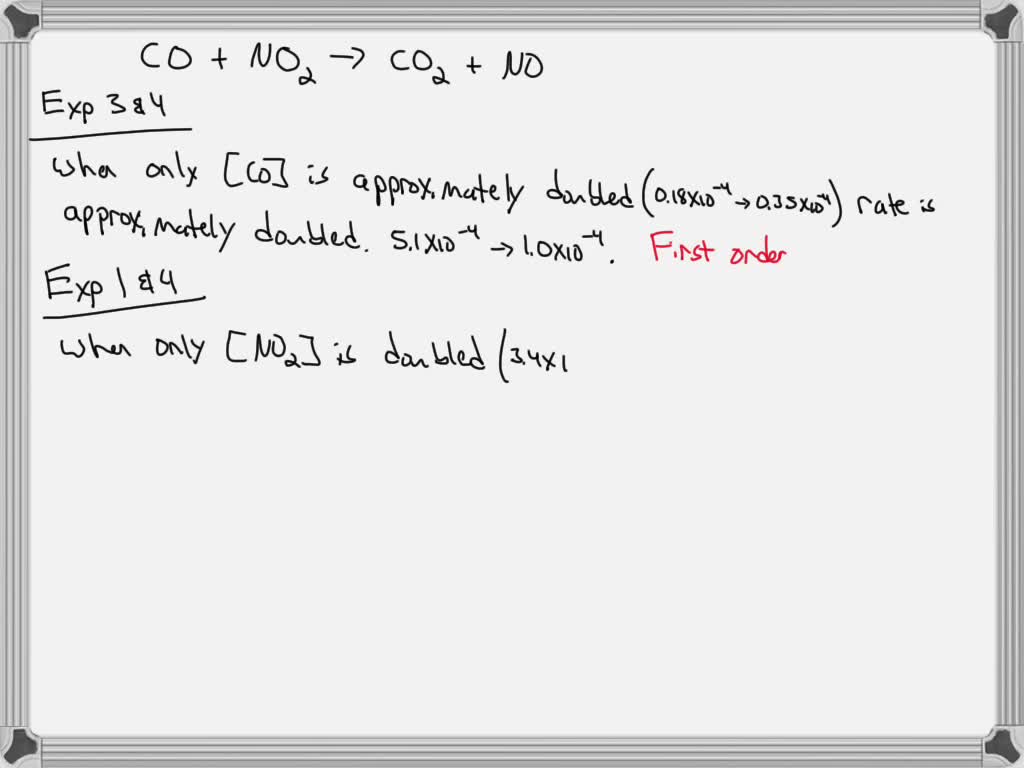 CO + NO₂ → CO₂ + NO
Exp 3 & 4
when only [CO] is approximately doubled (0.18x10⁻⁴ → 0.35x10⁻⁴) rate is
approximately doubled. 5.1x10⁻⁴ → 1.0x10⁻⁴. First order
Exp 1 & 4
when only [NO₂] is doubled (3.4x1